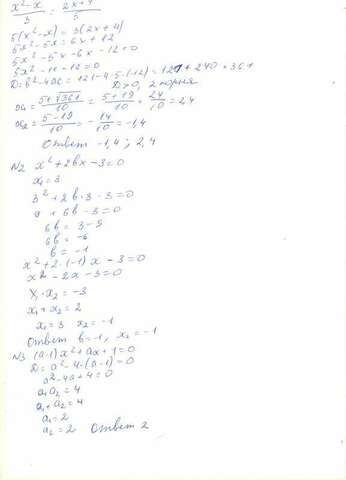 x²-x/3 = 2x+4/5
5(x²-x) = 3(2x+4)
5x²-5x = 6x+12
5x²-5x-6x-12=0
5x²-11-12=0
D=b²-4ac=121-4·5·(-12)=121+240=361
D>0, 2 корня
x₁=5+√361/10 = 5+19/10 = 24/10 = 2,4
x₂=5-19/10 = -14/10 = -1,4
Ответ -1,4 ; 2,4
N2 x²+2bx-3=0
x₁=3
3²+2b·3-3=0
9+6b-3=0
6b=3-9
6b=-6
b=-1
x²+2·(-1)x-3=0
x²-2x-3=0
x₁·x₂=-3
x₁+x₂=2
x₁=3 x₂=-1
Ответ b=-1, x₂=-1
N3 (a-1)x²+ax+1=0
D=a²-4·(a-1)=0
a²-4a+4=0
a₁a₂=4
a₁+a₂=4
a₁=2
a₂=2 Ответ 2